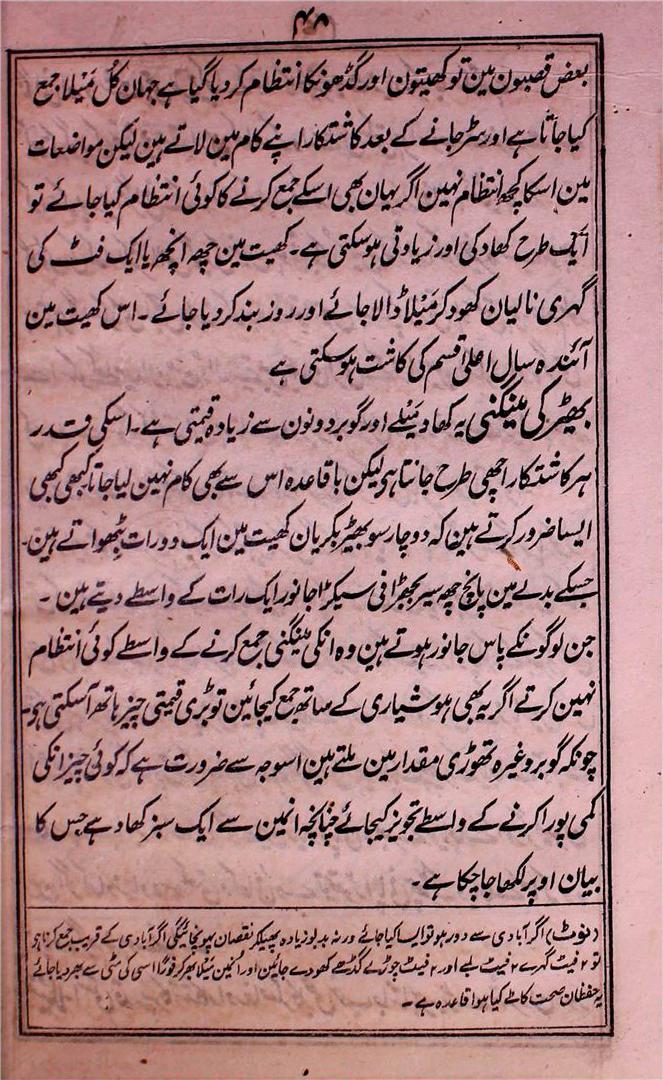 ۴۸
بعض قصبون مین تو کھیتون اور گڈھونکا انتظام کر دیا گیا ہے جہان کُل مَیلا جمع
کیا جاتا ہے اور سٹر جانے کے بعد کاشتکار اپنے کام مین لاتے ہین لیکن مواضعات
مین اسکا کچھ انتظام نہین اگر یہان بھی اسکے جمع کرنے کا کوئی انتظام کیا جائے تو
ایک طرح کھاد کی اور زیادتی ہو سکتی ہے۔ کھیت مین چھ انچھ یا ایک فٹ کی
گہری نالیان کھود کر مَیلا ڈالا جائے اور روز بند کر دیا جائے۔ اس کھیت مین
آئندہ سال اعلیٰ قسم کی کاشت ہو سکتی ہے
بھیڑ کی مینگنی یہ کھاد میلے اور گوبر دونون سے زیادہ قیمتی ہے۔ اسکی قدر
ہر کاشتکار اچھی طرح جانتا ہی لیکن باقاعدہ اس سے بھی کام نہین لیا جاتا کبھی کبھی
ایسا ضرور کرتے ہین کہ دو چار سو بھیڑ بکریان کھیت مین ایک دو رات بٹھواتے ہین۔
جسکے بدلے مین پانچ چھ سیر بجھڑا فی سیکڑا جانور ایک رات کے واسطے دیتے ہین۔
جن لوگونکے پاس جانور ہوتے ہین وہ انکی مینگنی جمع کرنے کے واسطے کوئی انتظام
نہین کرتے اگر یہ بھی ہوشیاری کے ساتھ جمع کیجائین تو بڑی قیمتی چیز ہاتھ آسکتی ہی۔
چونکہ گوبر وغیرہ تھوڑی مقدار مین ملتے ہین اسوجہ سے ضرورت ہے کہ کوئی چیز انکی
کمی پورا کرنے کے واسطے تجویز کیجائے چنانچہ انمین سے ایک سبز کھاد ہے جس کا
بیان اوپر لکھا جا چکا ہے۔
(نوٹ) اگر آبادی سے دور ہو تو ایسا کیا جائے ورنہ بدبو زیادہ پھیلکر نقصان پہونچائیگی اگر آبادی کے قریب جمع کرنا ہی
تو ۲ فیٹ گہرے ۲ فیٹ لمبے اور ۲ فیٹ چوڑے گڈھے کھودے جائین اور انمین مَیلا بھر کر فوراً اسی کی مٹی سے بھر دیا جائے
یہ حفظان صحت کا طے کیا ہوا قاعدہ ہے۔